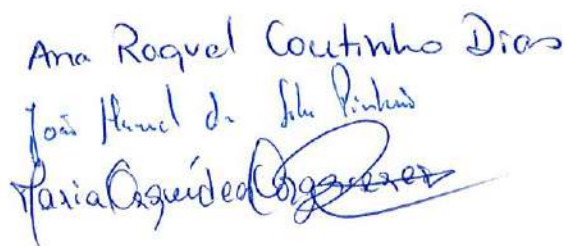 Ana Raquel Coutinho Dias
João Manuel da Silva Pinheiro
Maria